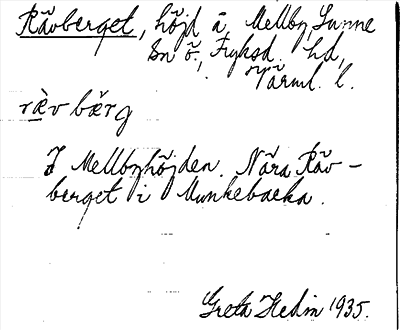 Rävberget, höjd å Mellby, Sunne
sn ö., Fryksd. hd,
Värml. l.
rävbärg
I Mellbyhöjden. Nära Räv-
berget i Munkebacka.
Greta Hedin 1935.